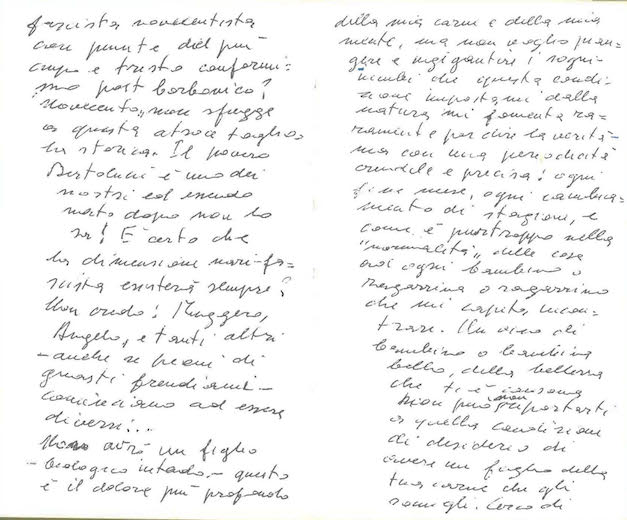 fascista novecentista
con punte del più
cupo e tristo conformi=
smo post borbonico!
Novecento,, non sfugge
a questa atroce taglio
la storica. Il povero
Bertolucci è uno dei
nostri ed essendo
nato dopo non lo
sa! È certo che
la dimensione nazi-fa=
scista esisterà sempre?
Non credo! Ruggero,
Angelo, e tanti altri
- anche se pieni di
guasti freudiani -
cominciano ad essere
diversi...
Non avrò un figlio
- biologico intendo - questo
è il dolore più profondo
della mia carne e della mia
mente, ma non voglio pian=
gere e ingigantire i sogni
nimbi che questa condi=
zione impostami dalla
natura mi fomenta ra=
ramente per dire la verità
ma con una periodicità
crudele e precisa! ogni
fine mese, ogni cambia=
mento di stagioni, e
come è purtroppo nella
"normalità,, delle cose
ad ogni bambino o
ragazzina o ragazzino
che mi capita incon=
trare. Un viso di
bambino o bambina
bello, della bellezza
che ti è consona
non può non riportarti
a quella condizione
di desiderio di
avere un figlio della
tua carne che gli
somigli. Cerco di